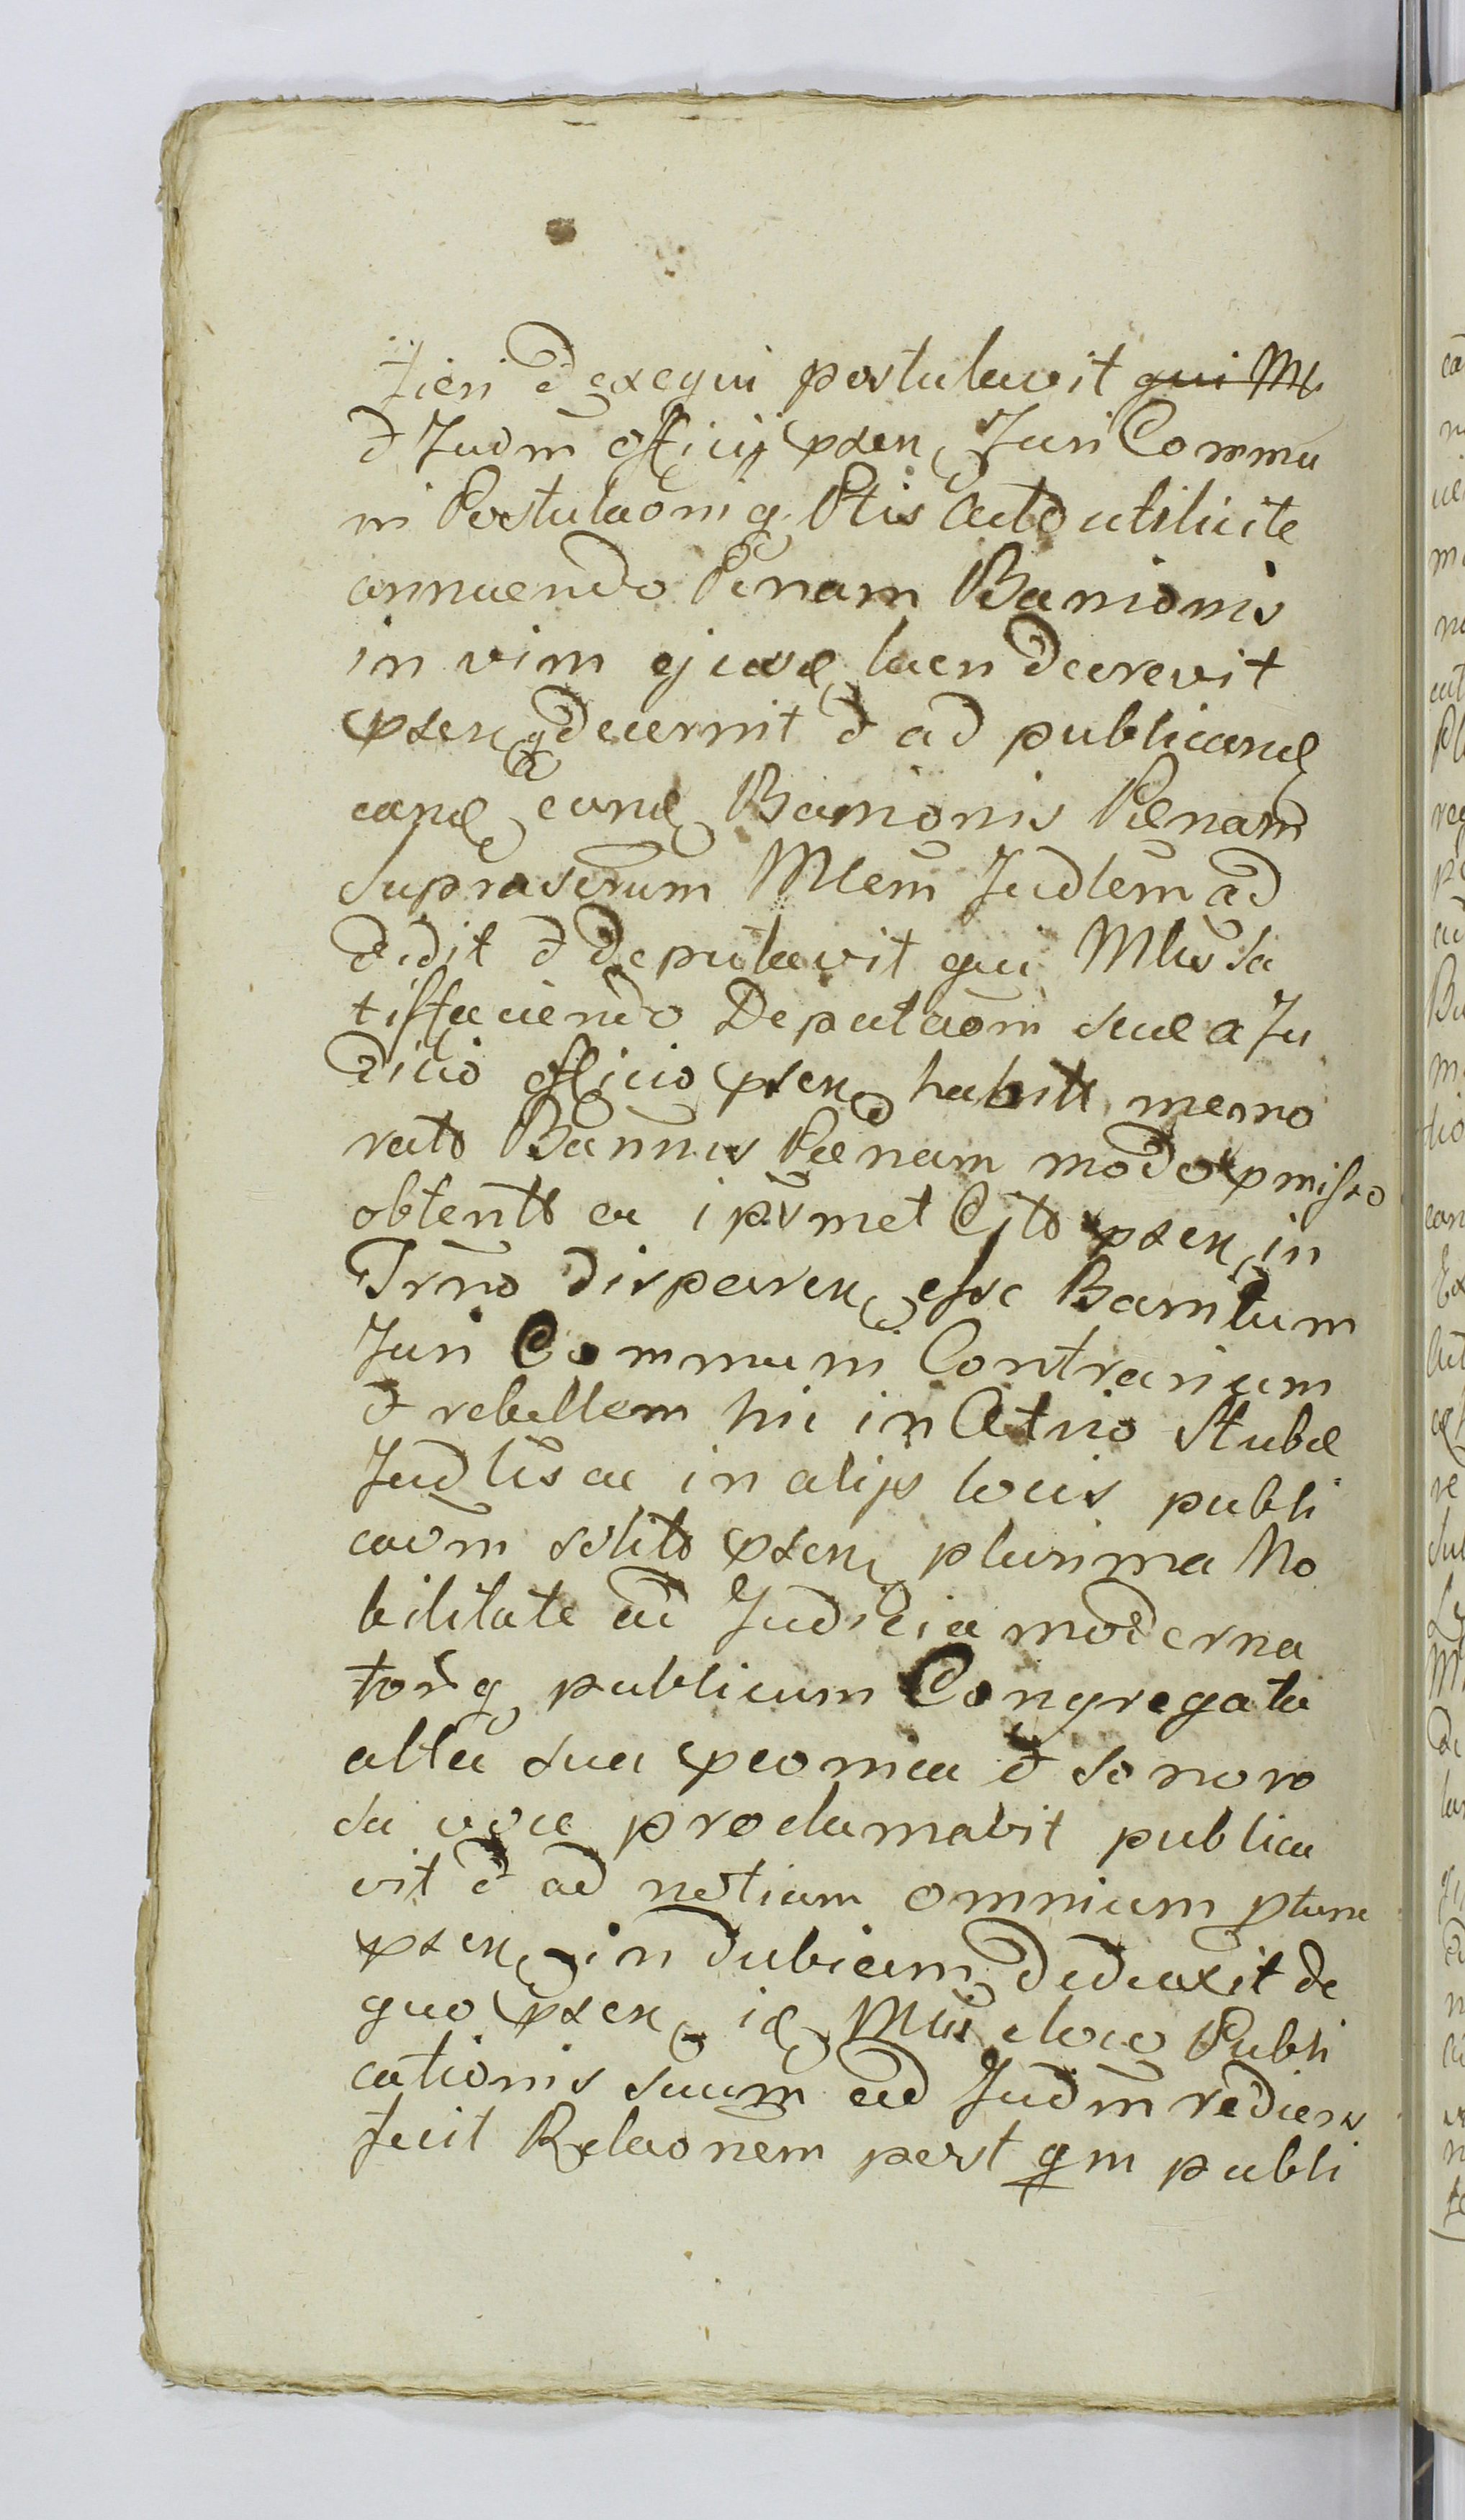 fieri et exequi postulavit qui Ml
et Judm officij psen Juri Commu
ni Postulaoniq Ptis Acto utilicite
annuendo Penam Banionis
in vim ejusd laen decrevit
psenq decernit et ad publicand
cand eand Banionis Penam
suprascrum Mlem Judlem ad
didit et deputavit qui Mlus sa
tisfaciendo Deputaom suae a Ju
dicio officio psen habitt memo
rato Bannis Penam modo pmisso
obtento ac ipsmet Cito psen in
Trno disparen esse Banitum
Juri Communi Contrarium
et rebellem hic in Atrio Stubae
Judlis ac in alijs locis publi
caom solito psen plurima No
bilitate ad Judicia moderna
forq publicum Congregata
alta sua peonica et sonoro
sa voce proclamavit publica
vit et ad notiam omnium ptunc
psen indubiam deduxit de
quo psen id Mlus eloco Publi
cationis suum ad Judm rediens
fecit Relaonem post qm publi